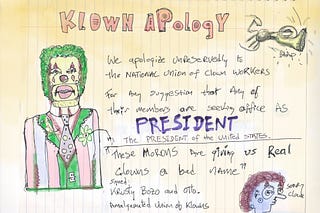 KLOWN APOLOGY
We apologize unreservedly to
the NATIONAL Union of Clown WORKERS
For Any Suggestion that Any of
their members are seeking office As
PRESIDENT
The PRESIDENT of the United STATES.
"These MoRoNs Are giving us Real
Clowns a bad name"
Signed
Krusty Bozo and otto.
Amalgamated Union of Klowns